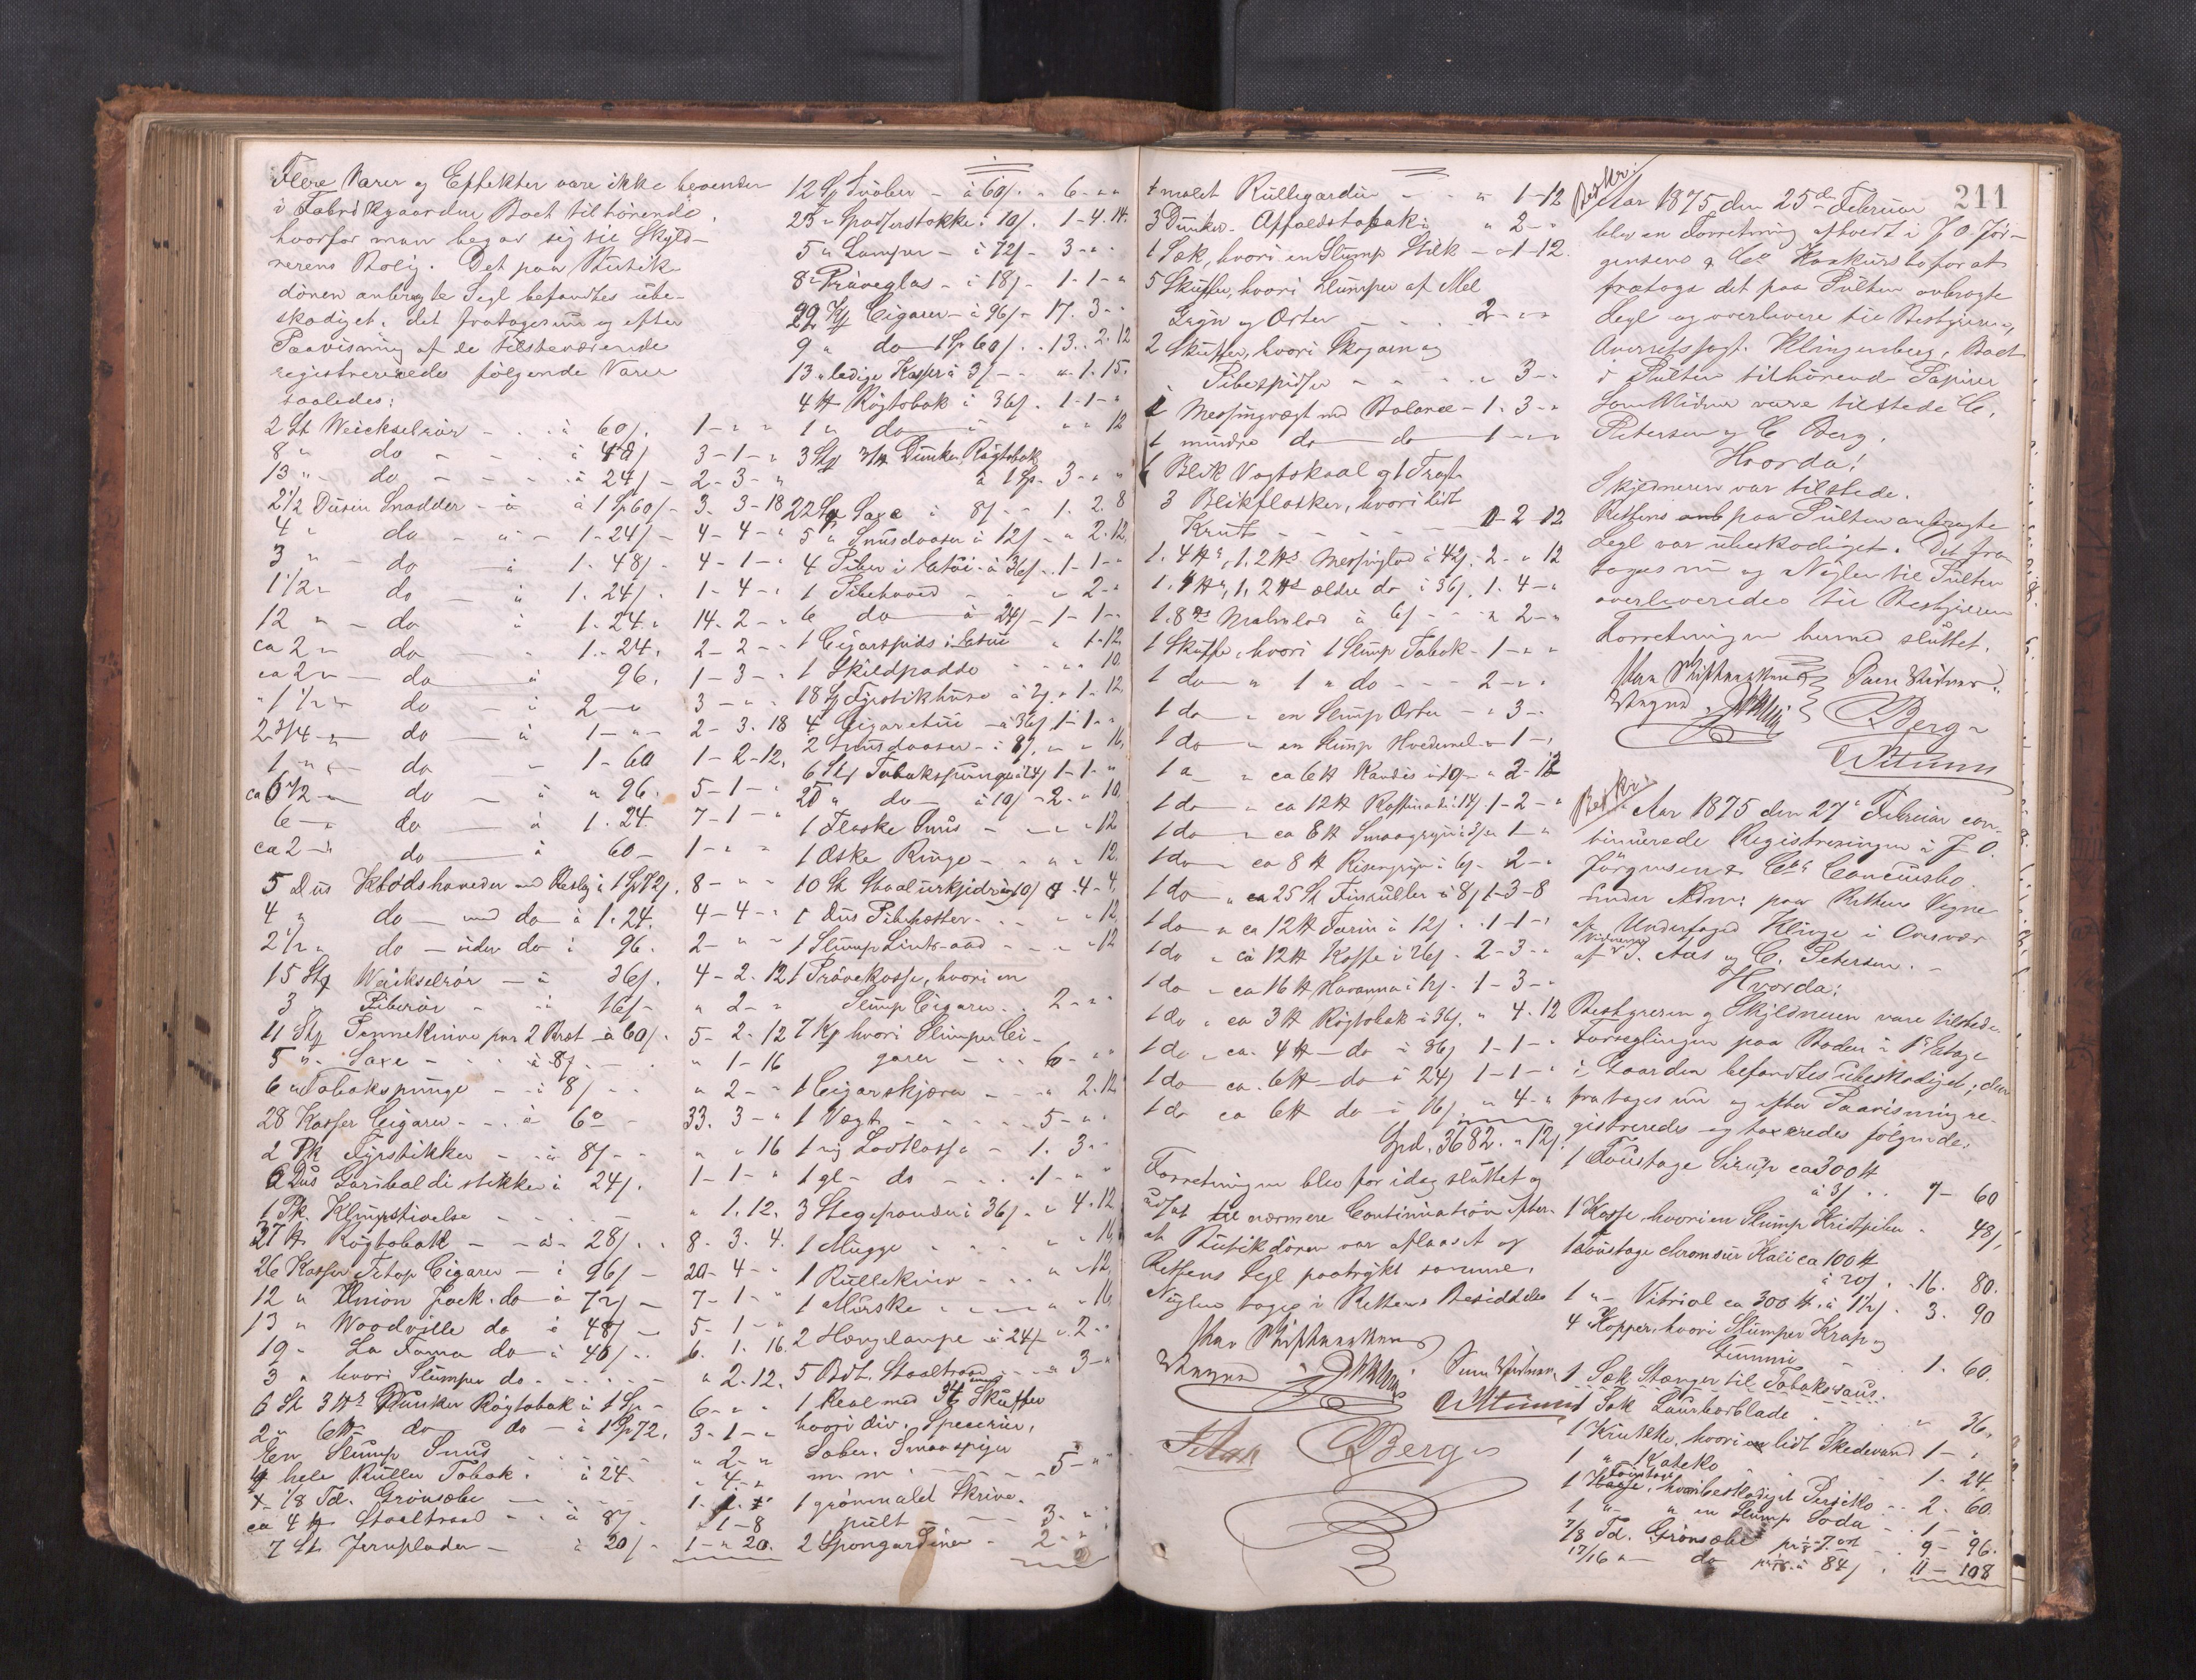 Flere Varer og Effekter vare ikke beroende
i Fabrikgaarden Boet tilhörende,
hvorfor man begav sig til Skyld-
nerens Bolig. Det paa Butik-
dören anbragte Segl befandtes ube-
skadiget. det fratoges nu og efter
Paavisning af de tilstedeværende
registreredes følgende Varer
saaledes:
2 St Weickselrör - - à 60/. 1 - " "
8 " do - - à 48/ 3 - 1 - "
13 " do - - - à 24/ - 2 - 3 - "
2 1/2 Dusin Snadder - à 1 Sp 60/ - 3. 3-18
4 " do - " - 1-24/ - 4-4- "
3 " - do - à 1. 48/. 4-1- "
1 1/2 " do - à 1. 24/. 1-4- "
12 " - do à 1. 24. 14. 2- "
ca 2 " do - " 1.-24. 2-2- "
ca 2 " - do - à 96. 1-3- "
" 1 1/2 " do - à 2 - " 3 - " "
2 3/4 - " do - à 1 - " - 2-3. 18
1 " " do - 1-60 1-2-12.
ca 6 1/2 - " do - à " 96. 5-1- "
6 - " do - à 1. 24. 7-1- "
ca 2 - " do - à 60 - 1 - " "
5 Dus Klodshoveder med Beslag à 1 Sp 72/. 8 - " "
4 " do - med do à 1. 24. 4-4- "
2 1/2 " do - uden do à 96. 2 - " "
15 Stk Weickselrör - à 36/. 4-2. 12
3 " Piberör - à 16/ - " 2 - "
11 Stk Penneknive par 2 Bræt à 60/. 5-2. 12
5 " Saxe - - - à 8/. - . " 1-16
6 " Tobakspunge - à 8/ - - " 2 - "
28 Kasser Cigarer - - à 60 - 33. 3 - "
2 Pk Fyrstikker - - à 8/ - - " " 16
6 Dus Garibaldi stikker à 24/. 1-1- "
1 Pk. Klumpstivelse - - - " 1. 12.
37 ℔ Rögtobak - - à - 28/. . 8. 3. 4.
26 Kasser Cigarer - à 96/ - 20-4- "
12 " Union Jack. do à 72/ - 7-1- "
13 " Woodville do à 48/ - 5-1- "
19 " La Fama do - à 40/ . . 6. 1. 16.
3 " hvori Slumper do - - - - " 2. 12.
6 St 3 ℔s Dunker Rögtobak à 1 Sp - 6 - " "
2 " 6 ℔s do do - à 1 Sp 72. 3-1- "
En Slump Snus - - - " 2 - "
4 hele Ruller Tobak. à 24. " 4 - "
1/8 Td. Grönsæbe - - -
ca 4 ℔ Staaltraad - - à 8/. " 1-8
7 St Jernplader - à 20/ - 1 - " 20.
12 St Svöber - à 60/. " 6 - " "
25 " Spadserstokke à 10/. 1-4. 14.
5 " Lamper - à 72/ - 3 - "
8 " Pröveglas - à 18/ - 1-1- "
22 Kj Cigarer - à 96/ - 17. 3 - "
9 " do - 1 Sp 60/. . 13. . 2. 12
13 " ledige Kasser à 3/ - - " - 1. 15.
4 ℔ Rögtobak à 36/. 1-1- "
1 " do - " " " 12
3 Stk 3/4 ℔ Dunker Rögtobak
à 1 Sp. 3 - " "
22 Stk Saxe à 8/ - - 1. 2. 8
5 " Snusdaaser à 12/ - " 2. 12.
4 Piber i Etui à 36/. . 1-1- "
1 Pibehoved - - - " 2 - "
6 do - à 24/ - 1-1- "
1 Cigarspids i Etui " 1-12.
1 Skildpadde - - " " 10.
18 St Fyrstikhuse à 7/. " 1. 12.
4 Cigaretuier - à 36/. 1-1- "
2 Snusdaaser - à 8/. " " 16.
6 Stk Tobakspunge à 24/ 1-1- "
25 " do - à 10/ - 2. " 10
1 Flaske Snus - - - " " 12
1 Æske Ringe - - - " " 12.
10 St Staalurkjeder à 10/ " 4-4.
1 Dus Pibehætter - - - " " 12.
1 Slump - - - " 12
1 Prövekasse, hvori en
Slump Cigarer. . 2 - " "
7 Kj hvori Slumper Ci-
garer - - - 6 - " "
1 Cigarskjærer - - - " 2. 12
1 Vægt - - - - - 5 - " "
1 ny Lodkasse - 1. 3 - "
1 gl - do - - - 1 - " "
3 Stegepander à 36/. - " 4. 12
1 Mugge - - - - " " 16.
1 Rullekniv - - - " " 12.
1 Murske - - - - " " 16.
2 Hængelampe à 24/ - " 2 - "
5 Bdt. Staaltraad - - " 3 - "
1 Reol med 36 Skuffer
hvori div. Specerier,
Sober. Smaaspiger
m. m. - - - 5 - "
1 grönmalet Skrive-
pult - - - 3 - "
2 Spongardiner - - 2 - "
1 malet Rullegardin - - " 1-12
3 Dunker Affaldstobak " 2 - "
1 Sæk, hvori en Slump Stilk - " 1-12.
5 Skuffer, hvori Slumper af Mel
Gryn og Erter - - - 2 - " "
2 Skuffer, hvori Skogarn og
Pibespidser - - - " 3 - "
1 Messingvægt med Balance - 1. 3 - "
1 mindre do - do - 1 - " "
1 Blik Vægtskaal og 1 Tragt
3 Blikflasker, hvori lidt
Krut - - - - 1-2-12
1. 4 ℔s, 1. 2 ℔s Messinglod à 42/. 2 - " 12
1. 4 ℔s, 1. 2 ℔s ældre do à 36/. 1. 4 - "
1. 8 ℔s Malmlod à 6/ - - " 2 - "
1 Skuffe, hvori 1 Slump Tobak - 1 - " "
1 do - " 1 " do - - - 2 - " "
1 do - " en Slump Erter - " 3 - "
1 do " en Slump Hvedemel - " 1 - "
1 do " ca 6 ℔ Kandis à 10/ - " 2-12
1 do - " ca 12 ℔ Raffinade à 14/. 1-2 - "
1 do - " ca 8 ℔ Smaagryn à 3/ " 1 - "
1 do - " ca 8 ℔ Risengryn à 6/ - 2 - "
1 do - " ca 25 St à 8/ 1-3-8
1 do - " ca 12 ℔ Farin à 12/. . 1-1- "
1 do " ca 12 ℔ Kaffe à 26/. 2-3 - "
1 do - " ca 16 ℔ Havanna à 12/. 1-3 - "
1 do " ca 3 ℔ Rögtobak à 36/. " 4. 12
1 do " ca. 4 ℔ - do à 36/ 1-1- "
1 do - ca. 6 ℔ - do à 24/ 1-1- "
1 do ca 6 ℔ do - à 16/ " 4 - "
Spd. 3682. " 12/.
Forretningen blev for idag sluttet og
udsat til nærmere Continuation efter-
at Butikdören var aflaaset og
Rettens Segl paatrykt samme.
Nöglen toges i Rettens Besiddelse
Som Vidner,
CBerg
Beskr:
211
Aar 1875 den 25de Februar
blev en Forretning afholdt i J. O. Jör-
gensens & Co Konkursbo for at
fratage det paa Pulten anbragte
Segl og overlevere til Bestyreren,
Overretssagf. Klingenberg, Boet
i Pulten tilhörende Papirer
Som Vidner vare tilstede C.
Petersen og C Berg.
Hvorda!
Skyldneren var tilstede.
Rettens anb paa Pulten anbragte
Segl var ubeskadiget. Det fra
toges nu og Nöglen til Pulten
overleveredes til Bestyreren
Forretningen hermed sluttet.
Som Vidner
CBerg
Beskr:
Aar 1875 den 27de Februar con-
tinuerede Registreringen i J. O.
Jörgensen & Co's Concursbo.
under Adm: paa Rettens Vegne
af Undertoged Klinge i Overvær
af Vidnerne J. Aas og C. Petersen. -
Hvorda:
Bestyreren og Skyldneren vare tilstede
Forseglingen paa Boden i 1ste Etage
i Gaarden befandtes ubeskadiget, den
fratoges nu og efter Paavisning re-
gistreredes og taxeredes følgende:
1 Foustage Sirup ca 300 ℔
à 3/. . . 7 - 60
1 Kasse, hvori en Slump Kridtpiber - 48/.
1 Foustage chromsur Kali ca 100 ℔
à 20/. . 16. 80.
1 " - Vitriol ca 300 ℔ à 1 1/2/. 3. 90
4 Kopper, hvori Slumper Krap og
Gummi - - - 1. 60.
1 Sæk Stænger til Tobakssaus.
1 Sæk Laurbærblade - - " 36.
1 Krukke, hvori en lidt Skedevand 1 - "
1 " Kateko - - - 1. 24.
1 Foustage, hvori beskadiget Persiko - - 2. 60.
1 " - " en Slump Soda - . 1 - "
7/8 Td. Grönsæbe - . 9 - 96.
17/16 " - do à 84/ . 11 - 108